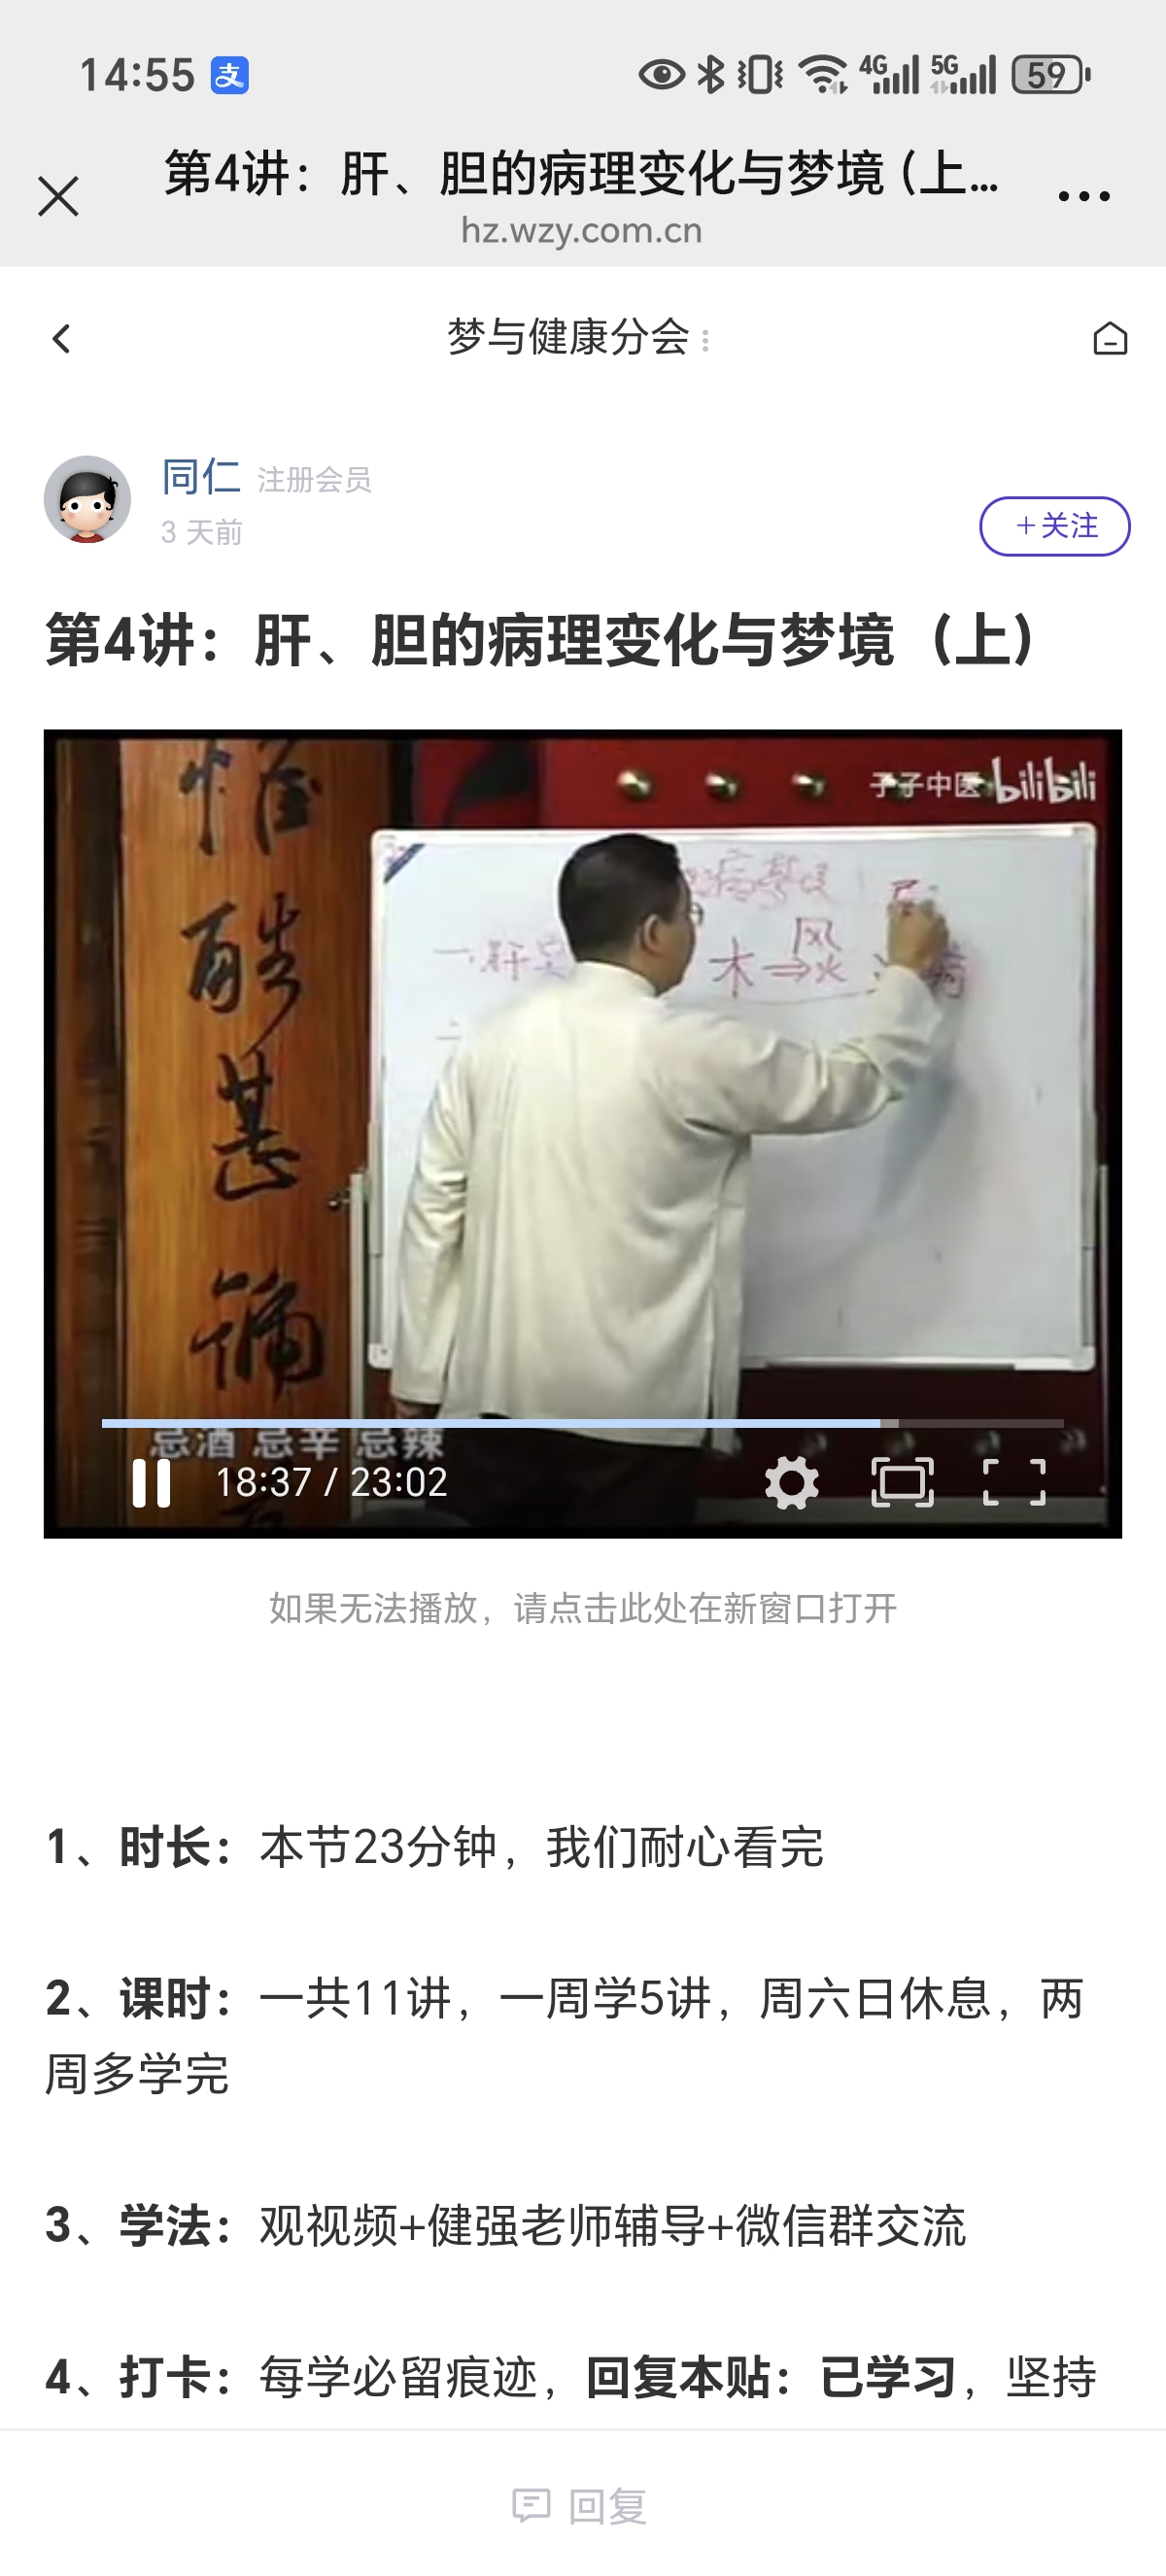 14:55 支 4G 5G 59
第4讲：肝、胆的病理变化与梦境 (上...
hz.wzy.com.cn
梦与健康分会
同仁 注册会员
3 天前
+关注
第4讲：肝、胆的病理变化与梦境（上）
子子中医 bilibili
酷
甚
一、肝
风
木⇒火
忌酒 忌辛 忌辣
18:37 / 23:02
如果无法播放，请点击此处在新窗口打开
1、时长：本节23分钟，我们耐心看完
2、课时：一共11讲，一周学5讲，周六日休息，两
周多学完
3、学法：观视频+健强老师辅导+微信群交流
4、打卡：每学必留痕迹，回复本贴：已学习，坚持
回复